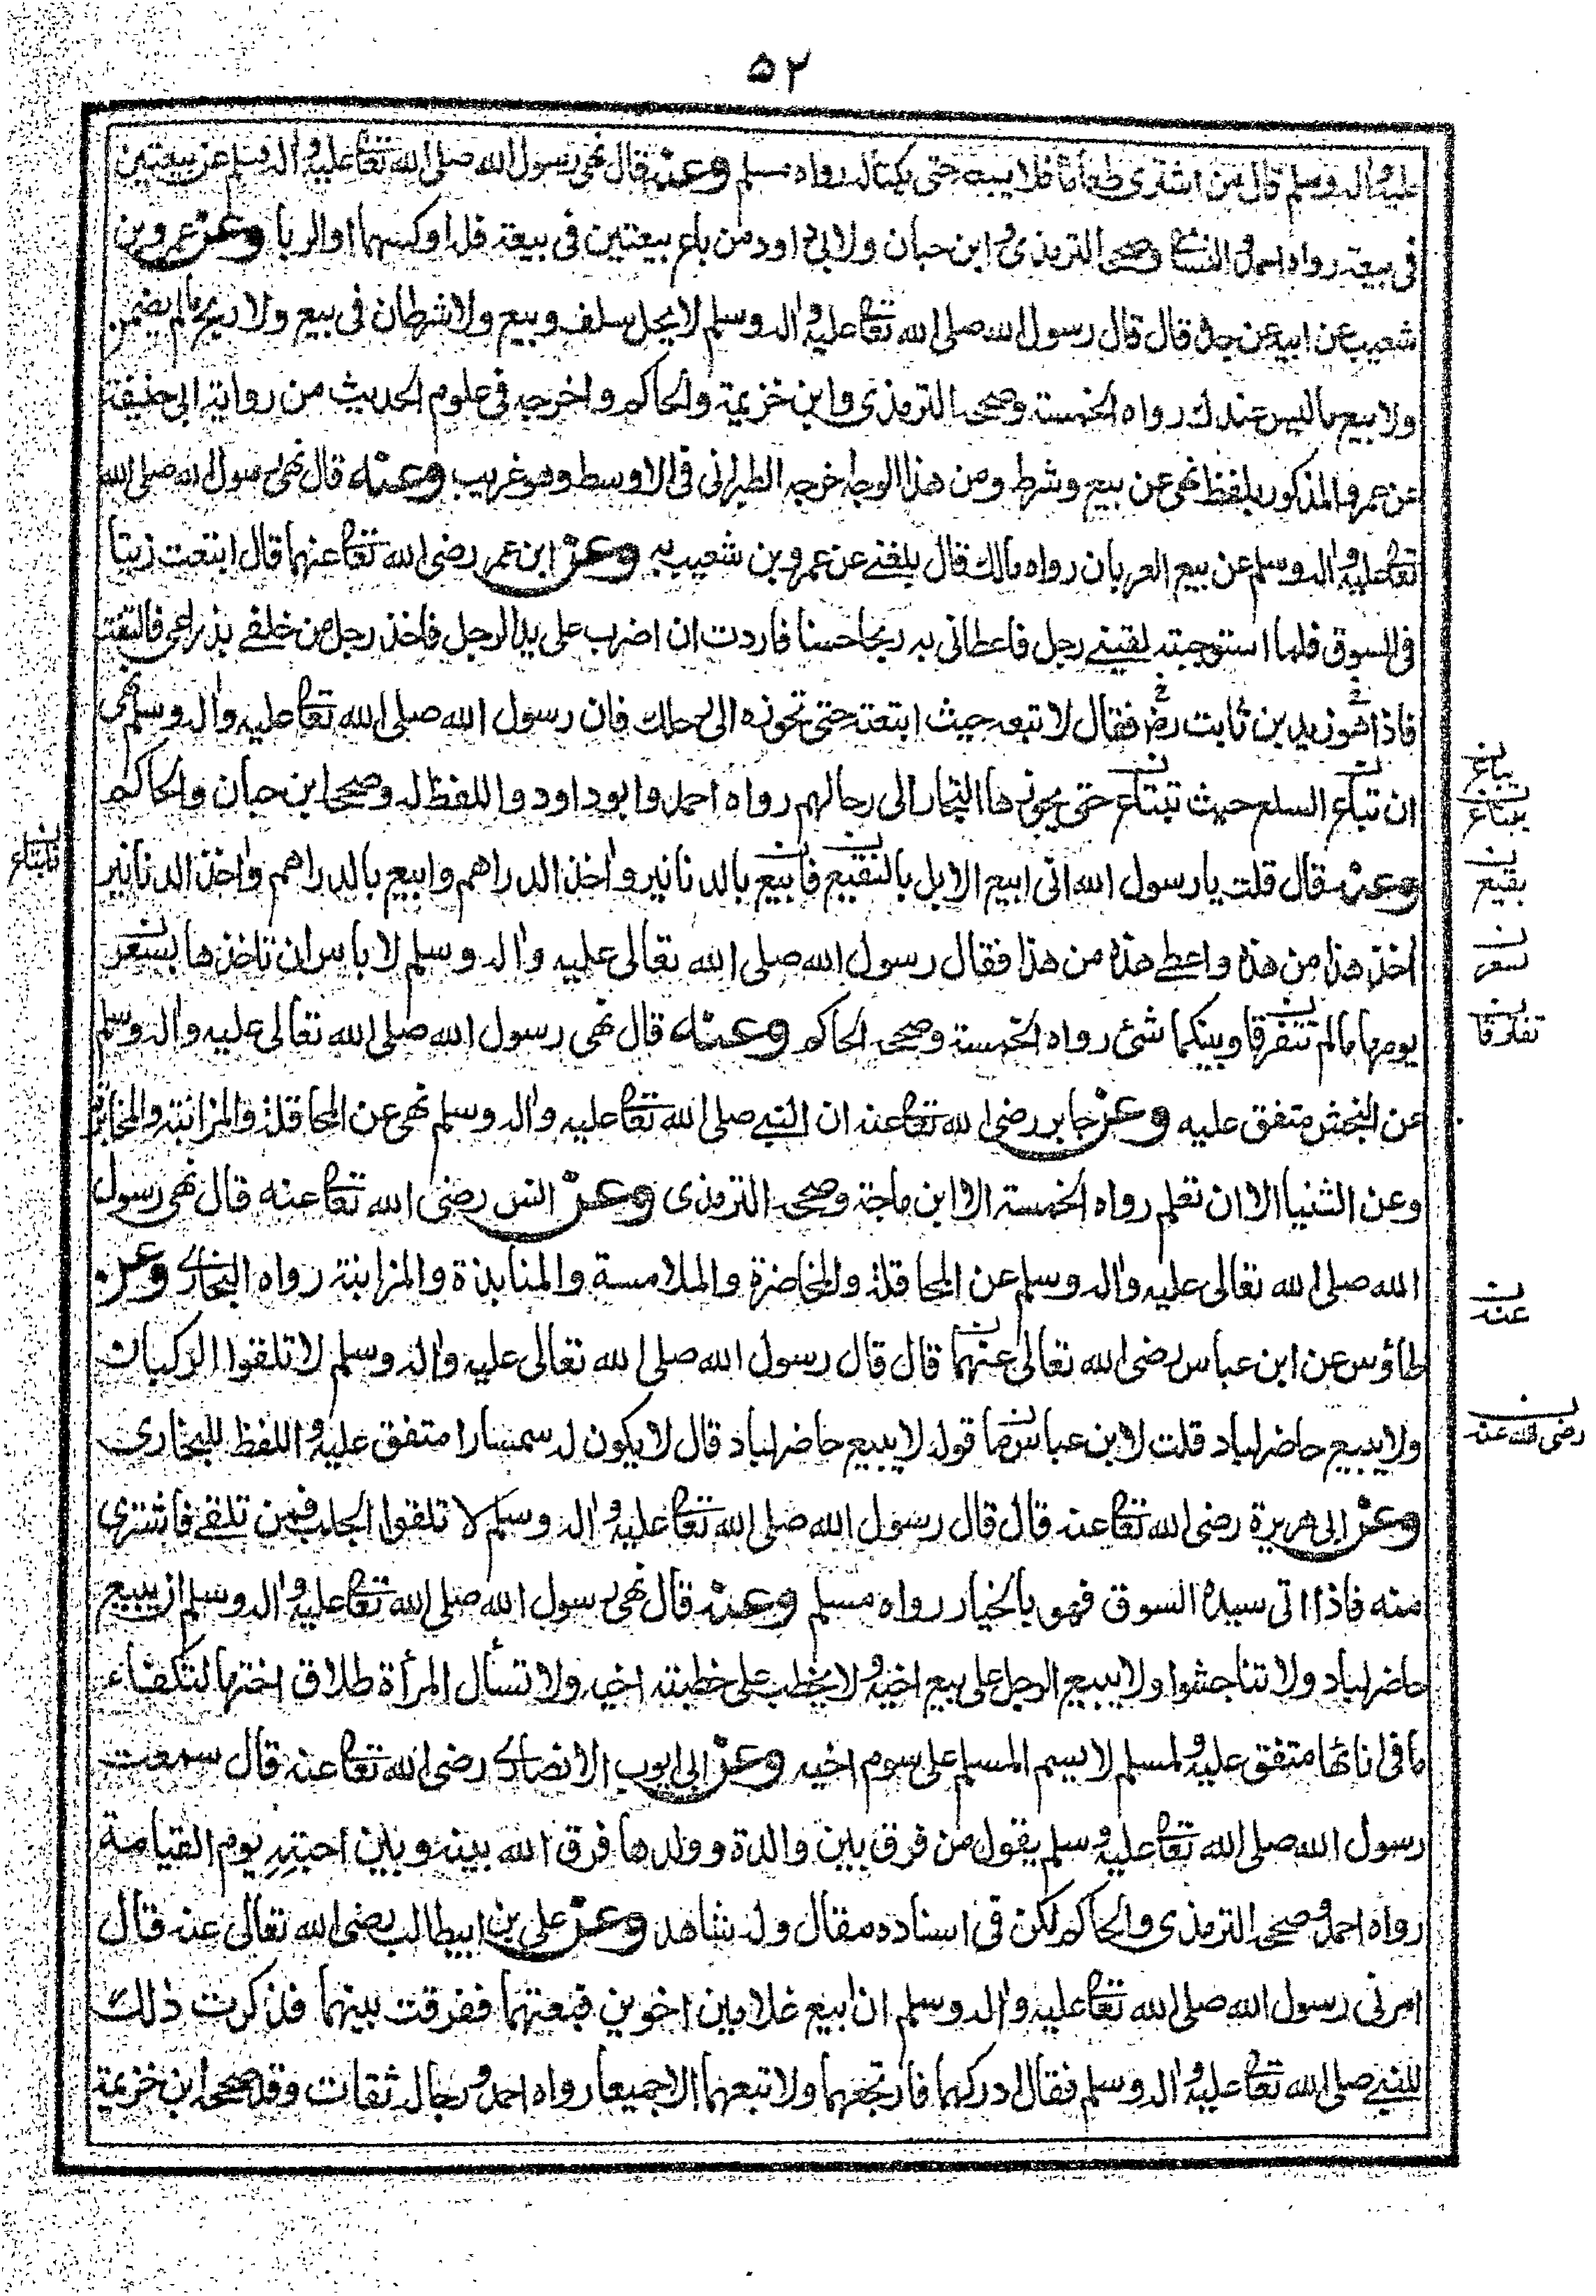 ٥٢
عليه واله وسلم قال من اشترى طعاما فلا يبعه حتى يكتاله رواه مسلم وعنه قال نهى رسول الله صلى الله تعا عليه واله وسلم عن بيعتين
فى بيعة رواه احمد والنسائى وصححه الترمذى وابن حبان ولابى داود من باع بيعتين فى بيعة فله اوكسهما او الربا وعن عمرو بن
شعيب عن ابيه عن جده قال قال رسول الله صلى الله تعا عليه واله وسلم لا يحل سلف وبيع ولا شرطان فى بيع ولا ربح ما لم يضمن
ولا بيع ما ليس عندك رواه الخمسة وصححه الترمذى وابن خزيمة والحاكم واخرجه فى علوم الحديث من رواية ابى حنيفة
عن عمرو المذكور بلفظ نهى عن بيع وشرط ومن هذا الوجه اخرجه الطبرانى فى الاوسط وهو غريب وعنه قال نهى رسول الله صلى الله
تعا عليه واله وسلم عن بيع العربان رواه مالك قال بلغنى عن عمرو بن شعيب به وعن ابن عمر رضى الله تعا عنهما قال ابتعت زيتا
فى السوق فلما استوجبته لقينى رجل فاعطانى به ربحا حسنا فاردت ان اضرب على يد الرجل فاخذ رجل من خلفى بذراعى فالتفت
فاذا هو زيد بن ثابت رضـ فقال لا تبعه حيث ابتعته حتى تحوزه الى رحلك فان رسول الله صلى الله تعا عليه واله وسلم نهى
ان تباع السلع حيث تبتاع حتى يحوزها التجار الى رحالهم رواه احمد وابو داود واللفظ له وصححه ابن حبان والحاكم
وعنه قال قلت يا رسول الله انى ابيع الابل بالنقيع فابيع بالدنانير واخذ الدراهم وابيع بالدراهم واخذ الدنانير
اخذ هذا من هذه واعطى هذه من هذا فقال رسول الله صلى الله تعالى عليه واله وسلم لا باس ان تاخذها بسعر
يومها ما لم تتفرقا وبينكما شئ رواه الخمسة وصححه الحاكم وعنه قال نهى رسول الله صلى الله تعالى عليه واله وسلم
عن النجش متفق عليه وعن جابر رضى الله تعا عنه ان النبى صلى الله تعا عليه واله وسلم نهى عن المحاقلة والمزابنة والمخابرة
وعن الثنيا الا ان تعلم رواه الخمسة الا ابن ماجة وصححه الترمذى وعن انس رضى الله تعا عنه قال نهى رسول
الله صلى الله تعالى عليه واله وسلم عن المحاقلة والمخاضرة والملامسة والمنابذة والمزابنة رواه البخارى وعن
طاؤس عن ابن عباس رضى الله تعالى عنهما قال قال رسول الله صلى الله تعالى عليه واله وسلم لا تلقوا الركبان
ولا يبيع حاضر لباد قلت لابن عباس ما قوله لا يبيع حاضر لباد قال لا يكون له سمسارا متفق عليه واللفظ للبخارى
وعن ابى هريرة رضى الله تعا عنه قال قال رسول الله صلى الله تعا عليه واله وسلم لا تلقوا الجلب فمن تلقى فاشترى
منه فاذا اتى سيده السوق فهو بالخيار رواه مسلم وعنه قال نهى رسول الله صلى الله تعا عليه واله وسلم ان يبيع
حاضر لباد ولا تناجشوا ولا يبيع الرجل على بيع اخيه ولا يخطب على خطبته اخيه ولا تسأل المرأة طلاق اختها لتكفاء
ما فى انائها متفق عليه ولمسلم لا يسم المسلم على سوم اخيه وعن ابى ايوب الانصارى رضى الله تعا عنه قال سمعت
رسول الله صلى الله تعا عليه وسلم يقول من فرق بين والدة وولدها فرق الله بينه وبين احبته يوم القيامة
رواه احمد وصححه الترمذى والحاكم لكن فى اسناده مقال وله شاهد وعن على بن ابيطالب رضى الله تعالى عنه قال
امرنى رسول الله صلى الله تعا عليه واله وسلم ان ابيع غلامين اخوين فبعتهما ففرقت بينهما فذكرت ذلك
للنبى صلى الله تعا عليه واله وسلم فقال ادركهما فارتجعهما ولا تبعهما الا جميعا رواه احمد ورجاله ثقات وقد صححه ابن خزيمة
يباع
يبتاع
بقيع
سعر
تفترقا
عنه
رضى الله عنه